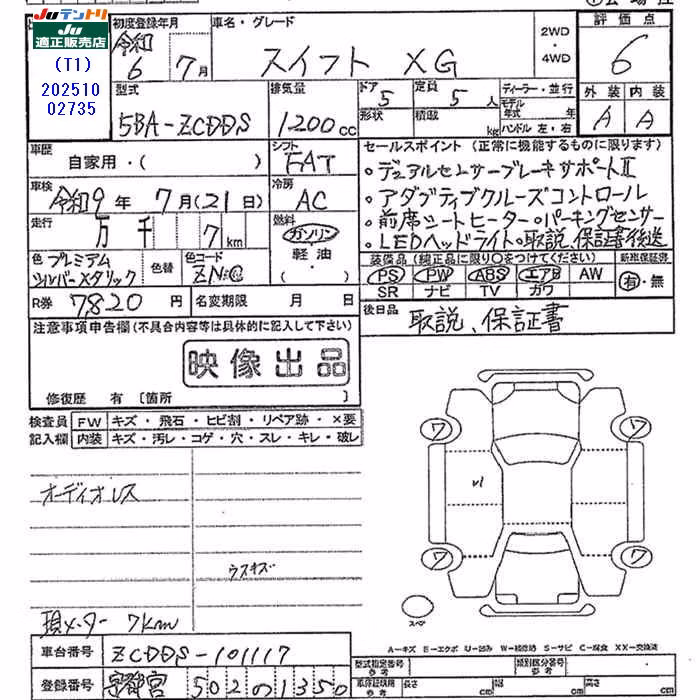 Ju テントリ
Ju
適正販売店
(T1)
202510
02735
初度登録年月
車名・グレード
令和 6 7月
スイフト XG
2WD
・
4WD
評価点
6
型式
5BA-ZCDDS
排気量
1200 cc
ドア 5
定員 5 人
形状
積載 kg
ディーラー・並行
モデル年式 年
ハンドル 左・右
外装 内装
A A
車歴
自家用・( )
シフト
FAT
セールスポイント (正常に機能するものに限ります)
・デュアルセンサーブレーキサポートⅡ
・アダプティブクルーズコントロール
・前席シートヒーター・パーキングセンサー
・LEDヘッドライト・取説、保証書後送
車検
令和9年 7月(21日)
冷房
AC
走行
万 千 7 km
燃料
ガソリン
軽油
・
色 プレミアム
シルバーメタリック
色替
色コード
ZNC
装備品 (純正品に限り○をつけてください)
新車保証書
PS PW ABS エアB AW
SR ナビ TV カワ
有・無
R券 7,820 円
名変期限 月 日
後日品
取説、保証書
注意事項申告欄 (不具合内容等は具体的に記入して下さい)
映像出品
修復歴 有 〔箇所 〕
検査員
記入欄
FW キズ・飛石・ヒビ割・リペア跡・×要
内装 キズ・汚レ・コゲ・穴・スレ・キレ・破レ
オーディオレス
ウスキズ
現メーター 7km
ワ ワ
ワ ワ
スペア
A-キズ E-エクボ U-凹み W-補修跡 S-サビ C-腐食 XX-交換済
車台番号 ZCDDS-101117
登録番号 宇都宮 502 の 1350
型式指定番号
参考
類別区分番号
参考
車庫証明用
参考
長さ cm
幅 cm
高さ cm